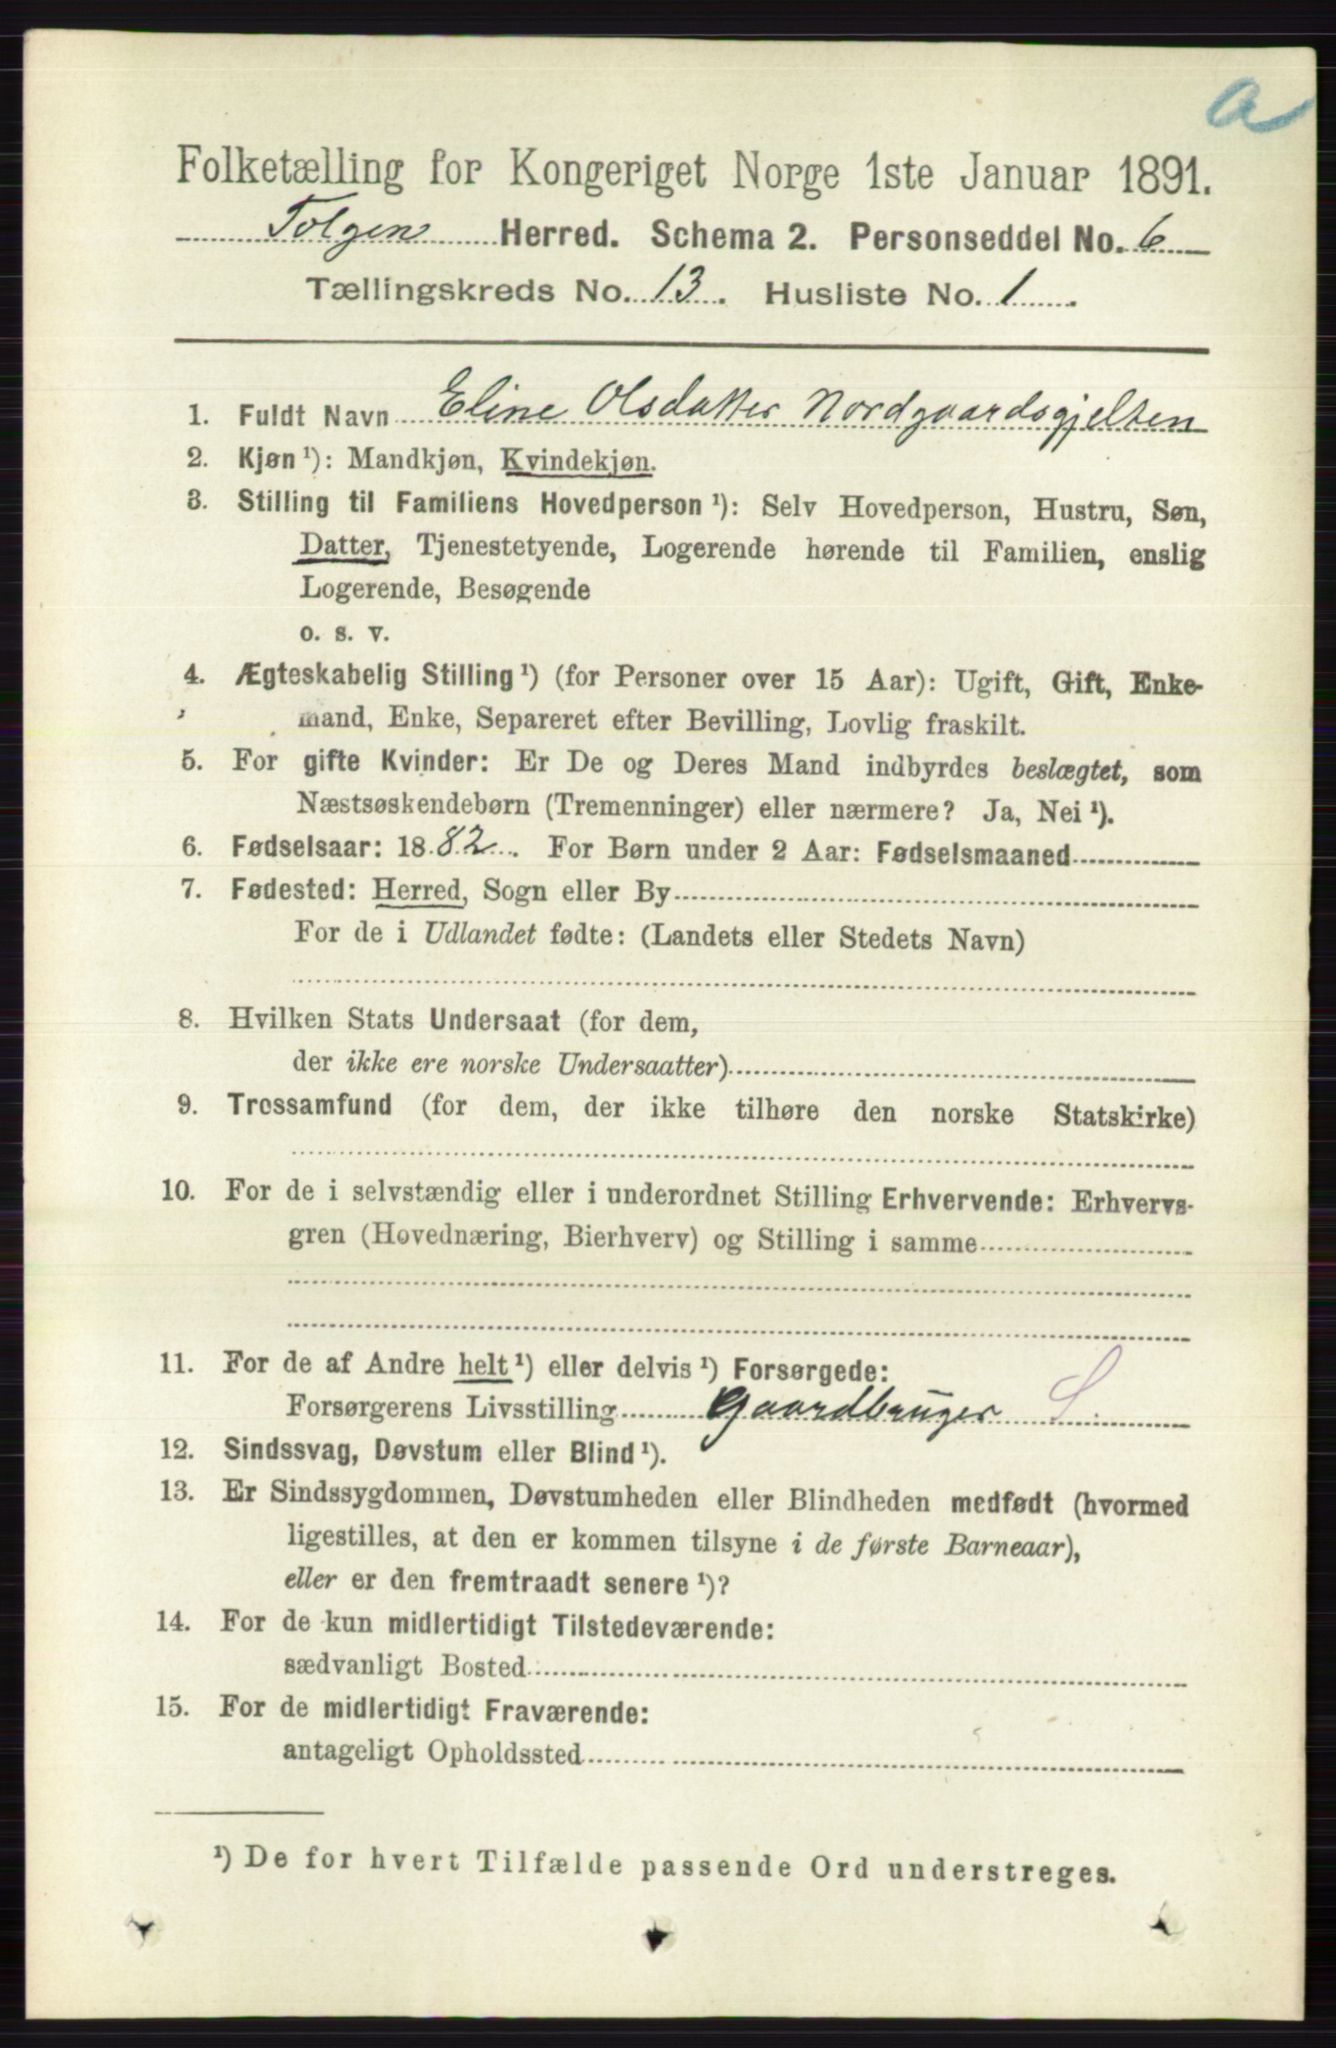 a
Folketælling for Kongeriget Norge 1ste Januar 1891.
Tolgen Herred. Schema 2. Personseddel No. 6
Tællingskreds No. 13. Husliste No. 1.
1. Fuldt Navn Eline Olsdatter Nordgaardsgjelten
2. Kjøn ¹): Mandkjøn, Kvindekjøn.
3. Stilling til Familiens Hovedperson ¹): Selv Hovedperson, Hustru, Søn,
Datter, Tjenestetyende, Logerende hørende til Familien, enslig
Logerende, Besøgende
o. s. v.
4. Ægteskabelig Stilling ¹) (for Personer over 15 Aar): Ugift, Gift, Enke-
mand, Enke, Separeret efter Bevilling, Lovlig fraskilt.
5. For gifte Kvinder: Er De og Deres Mand indbyrdes beslægtet, som
Næstsøskendebørn (Tremenninger) eller nærmere? Ja, Nei ¹).
6. Fødselsaar: 1882. For Børn under 2 Aar: Fødselsmaaned
7. Fødested: Herred, Sogn eller By
For de i Udlandet fødte: (Landets eller Stedets Navn)
8. Hvilken Stats Undersaat (for dem,
der ikke ere norske Undersaatter)
9. Trossamfund (for dem, der ikke tilhøre den norske Statskirke)
10. For de i selvstændig eller i underordnet Stilling Erhvervende: Erhvervs-
gren (Hovednæring, Bierhverv) og Stilling i samme
11. For de af Andre helt ¹) eller delvis ¹) Forsørgede:
Forsørgerens Livsstilling Gaardbruger S.
12. Sindssvag, Døvstum eller Blind ¹).
13. Er Sindssygdommen, Døvstumheden eller Blindheden medfødt (hvormed
ligestilles, at den er kommen tilsyne i de første Barneaar),
eller er den fremtraadt senere ¹)?
14. For de kun midlertidigt Tilstedeværende:
sædvanligt Bosted
15. For de midlertidigt Fraværende:
antageligt Opholdssted
¹) De for hvert Tilfælde passende Ord understreges.